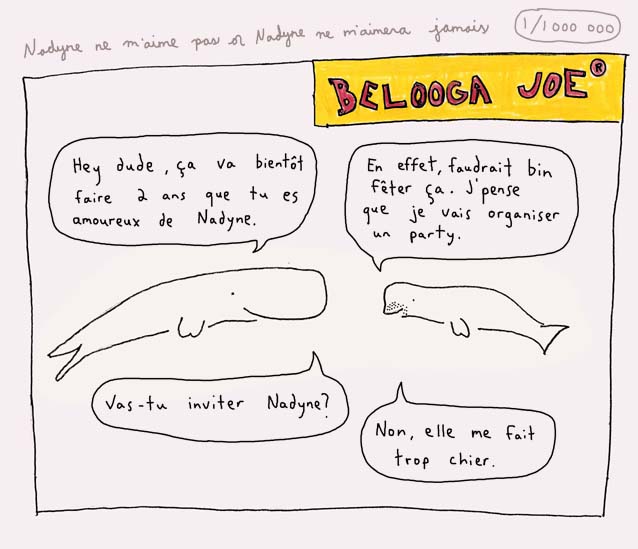 Nadyne ne m'aime pas or Nadyne ne m'aimera jamais
1/1 000 000
BELOOGA JOE®
Hey dude, ça va bientôt
faire 2 ans que tu es
amoureux de Nadyne.
En effet, faudrait bin
fêter ça. J'pense
que je vais organiser
un party.
Vas-tu inviter Nadyne?
Non, elle me fait
trop chier.